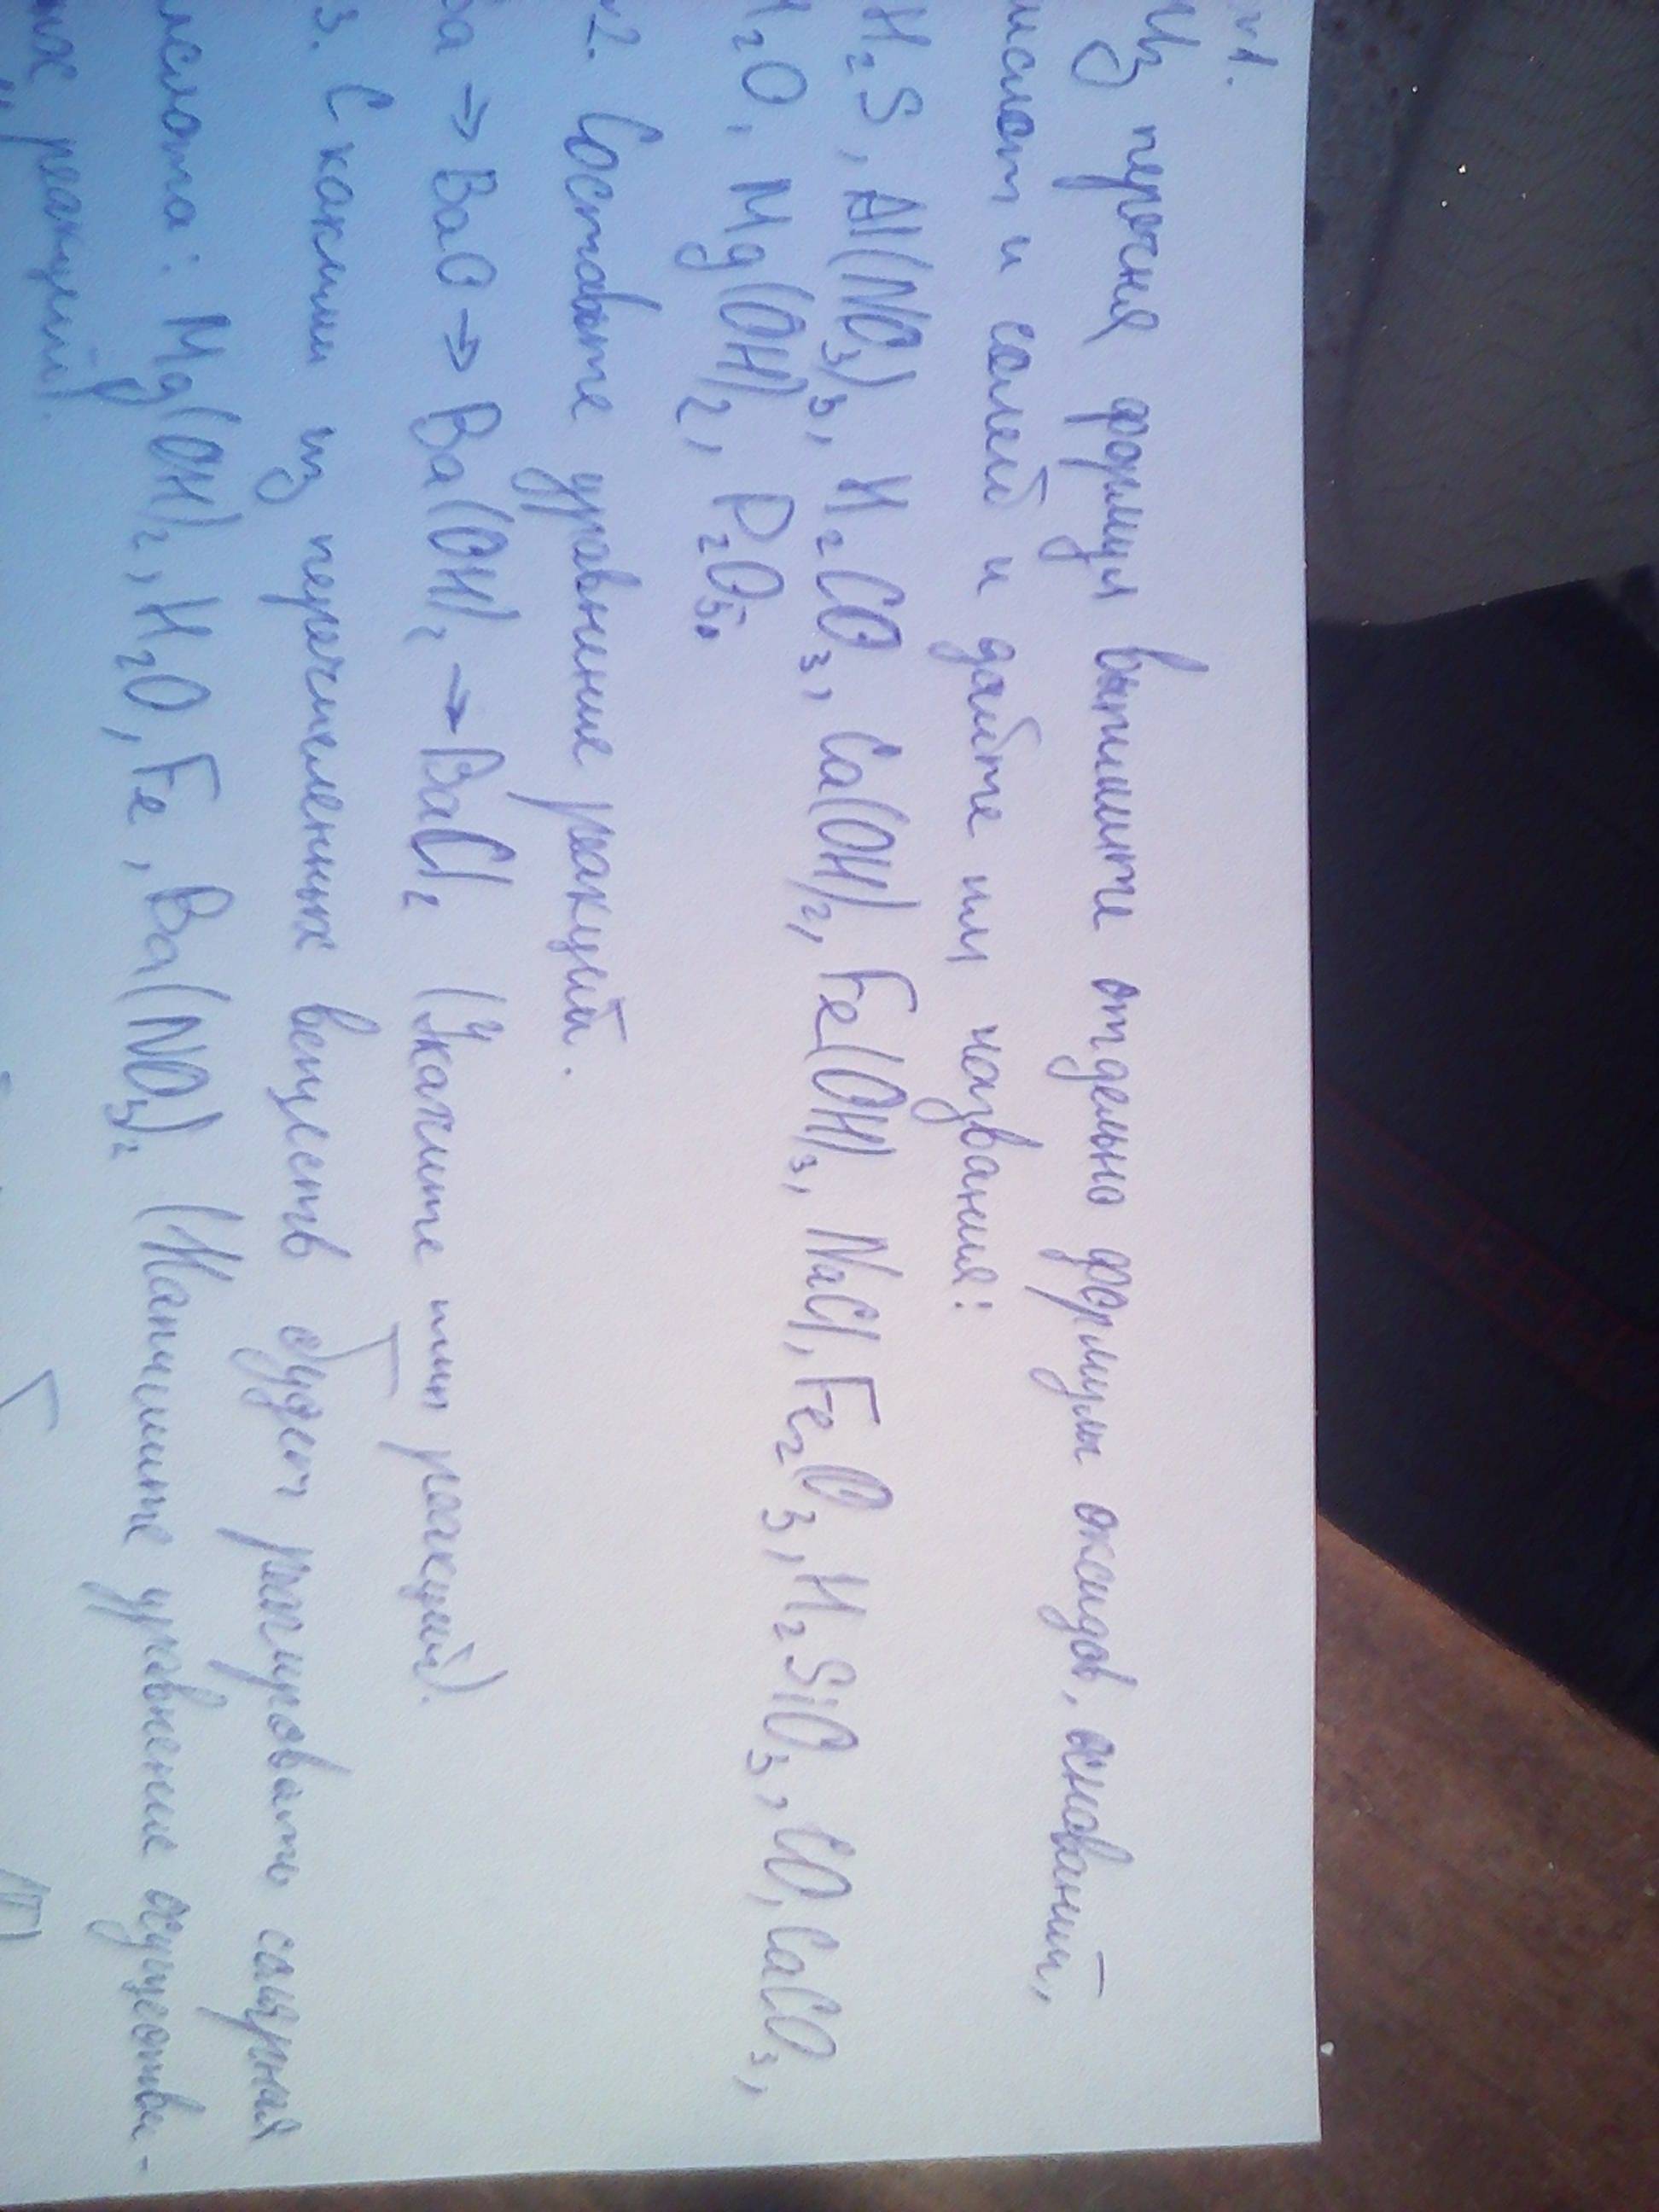 №1.
Из перечня формул выпишите отдельно формулы оксидов, оснований,
кислот и солей и дайте им названия:
H₂S, Al(NO₃)₃, H₂CO₃, Ca(OH)₂, Fe(OH)₃, NaCl, Fe₂O₃, H₂SiO₃, CO, CaCO₃,
H₂O, Mg(OH)₂, P₂O₅.
№2. Составьте уравнение реакций.
Ba → BaO → Ba(OH)₂ → BaCl₂ (Укажите тип реакций).
3. С какими из перечисленных веществ будет реагировать серная
кислота: Mg(OH)₂, H₂O, Fe, Ba(NO₃)₂ (Напишите уравнение осуществи-
мых реакций).